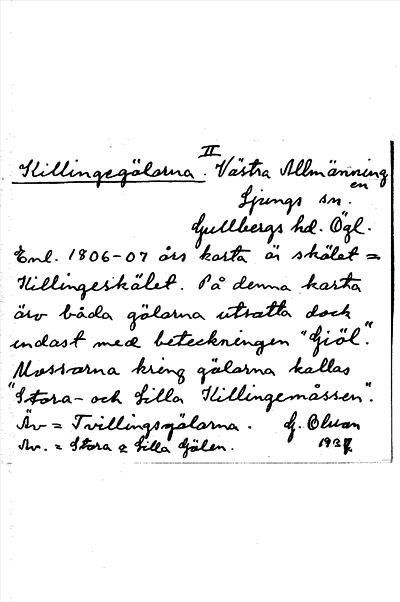 II
Killingegölarna. Västra Allmänningen
Ljungs sn.
Gullbergs hd. Ögl.
Enl. 1806-07 års karta är skälet =
Killingeskälet. På denna karta
äro båda gölarna utsatta dock
endast med beteckningen "Giöl".
Mossarna kring gölarna kallas
"Stora- och Lilla Killingemåssen".
Äv = Tvillingsgölarna. G. Olson
Äv. = Stora & Lilla Gölen. 1937.